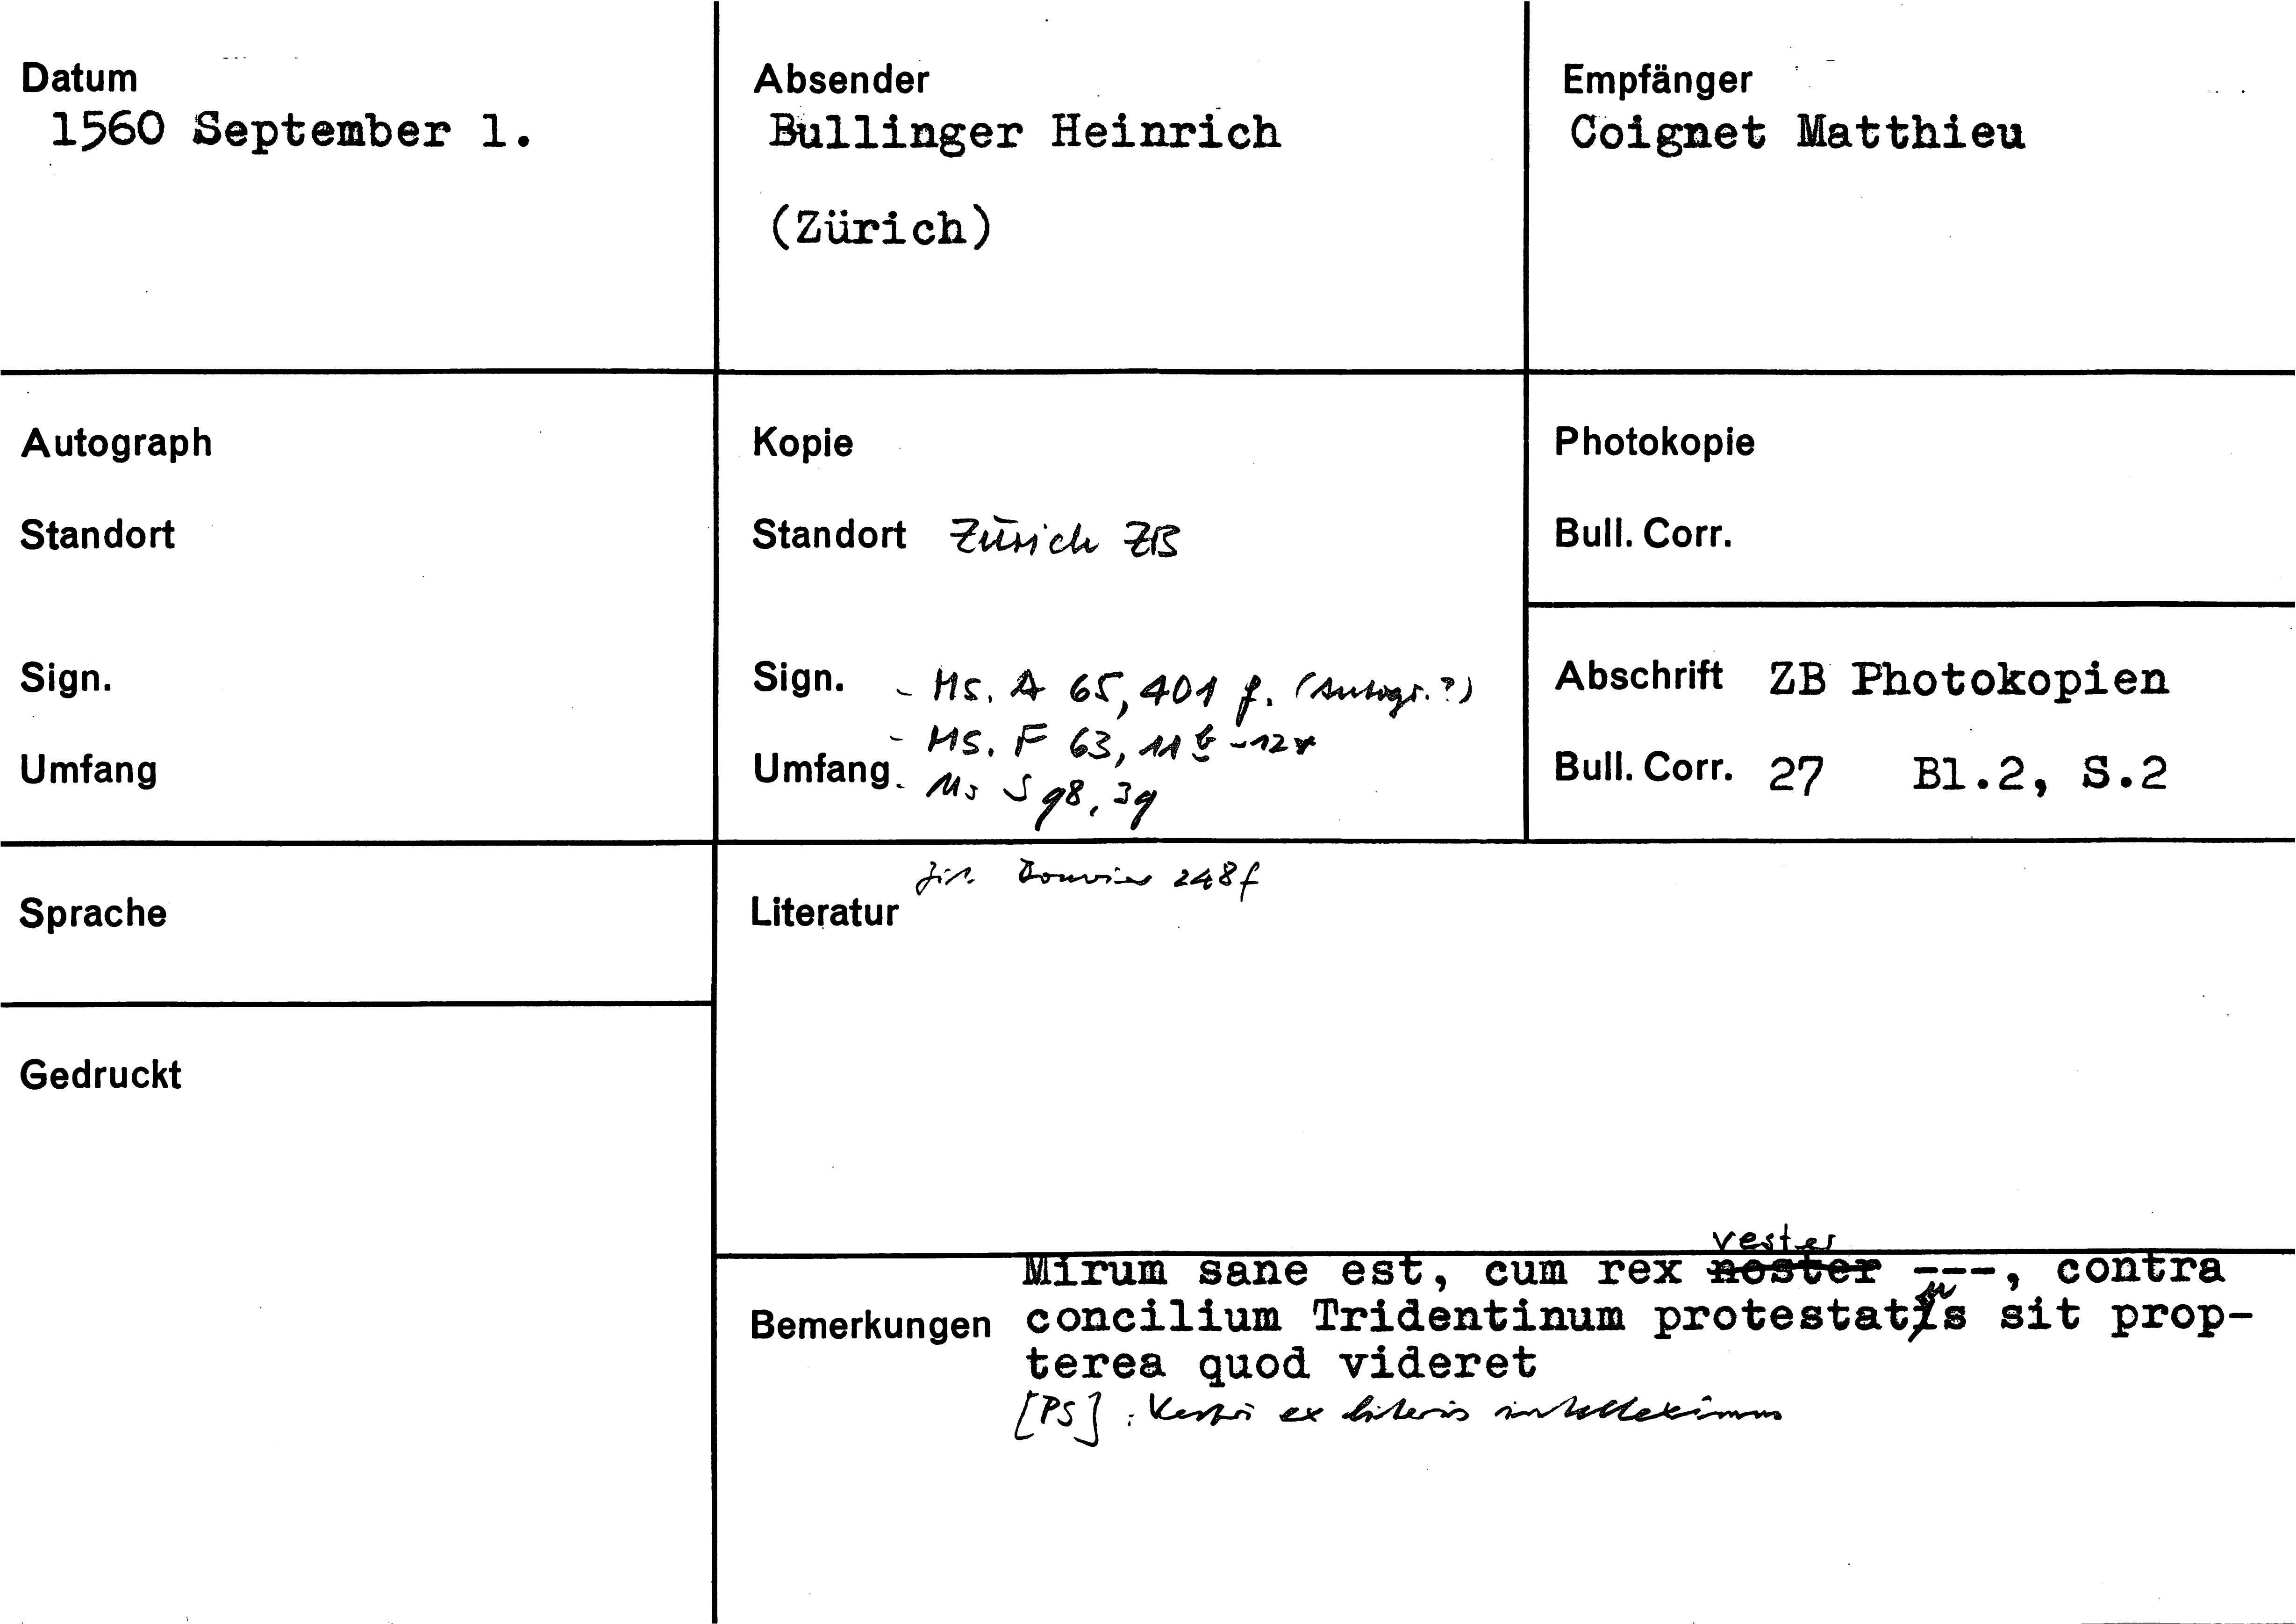 Datum
1560 September 1.
Absender
Bullinger Heinrich
(Zürich)
Empfänger
Coignet Matthieu
Autograph
Standort
Sign.
Umfang
Kopie
Standort Zürich ZB
Sign. - Ms. A 65, 401 f. (Autogr.?)
- Ms. F 63, 11
Umfang - Ms S 98, 39
Photokopie
Bull. Corr.
Abschrift ZB Photokopien
Bull. Corr. 27 Bl.2, S.2
Sprache
Gedruckt
zit. 248f
Literatur
vester
Mirum sane est, cum rex noster ---, contra
Bemerkungen concilium Tridentinum protestatus sit prop-
terea quod videret
[PS]: ex literis intelleximus